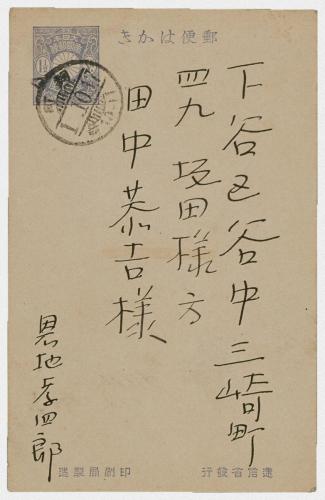 郵便はかき
下谷区谷中三崎町
四九 坂田様方
田中恭吉様
恩地孝四郎
逓信省発行
印刷局製造